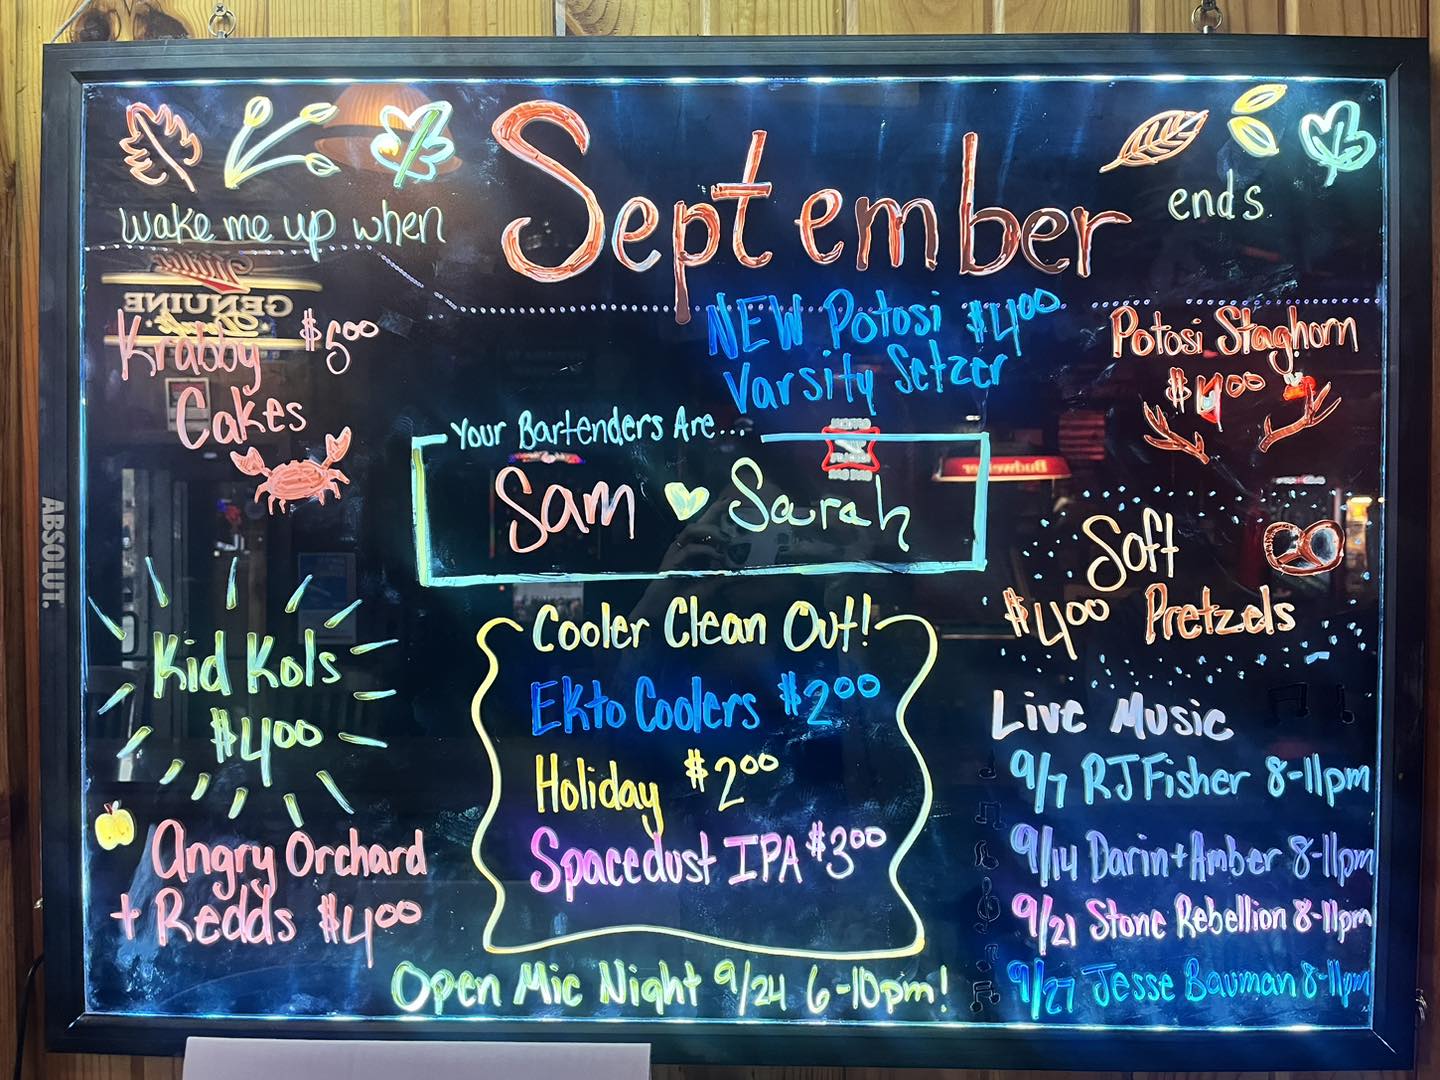 wake me up when September ends
Krabby $5.00
Cakes
NEW Potosi $4.00
Varsity Setzer
Potosi Staghorn
$4.00
Your Bartenders Are...
Sam Sarah
Soft
$4.00 Pretzels
Kid Kols
$4.00
Cooler Clean Out!
Ekto Coolers $2.00
Holiday $2.00
Spacedust IPA $3.00
Angry Orchard
+ Redds $4.00
Live Music
9/7 RJ Fisher 8-11pm
9/14 Darin + Amber 8-11pm
9/21 Stone Rebellion 8-11pm
9/27 Jesse Bauman 8-11pm
Open Mic Night 9/24 6-10pm!
ABSOLUT.
Miller
GENUINE
Budweiser